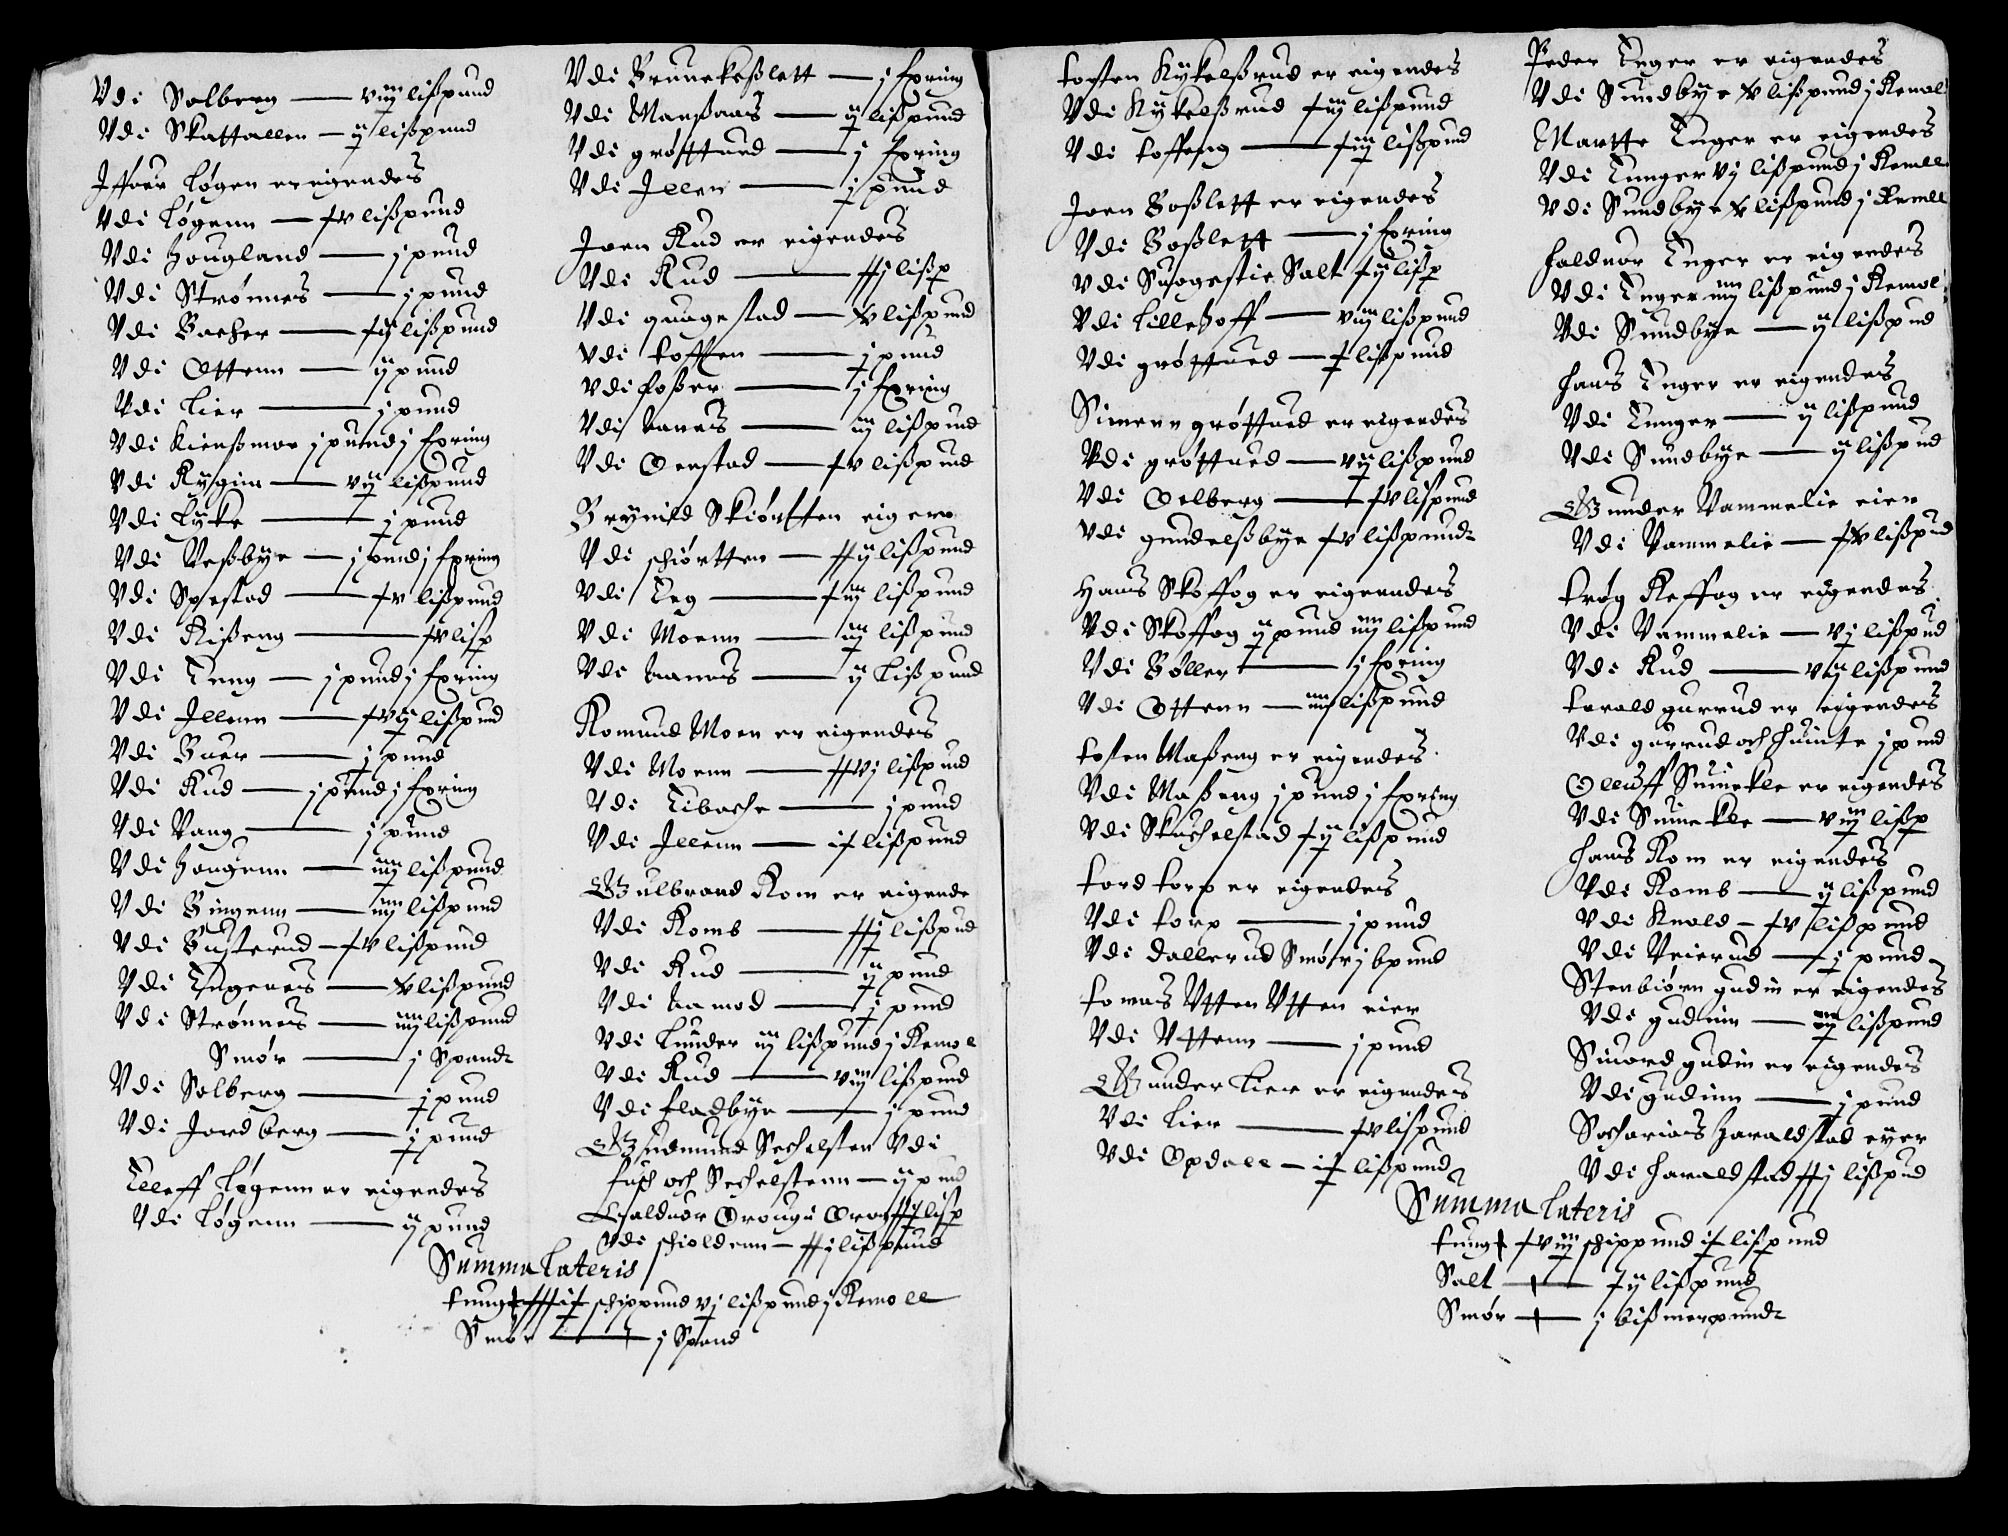 Vdi Solberg — viij lißpund
Vdi Skattallen — ij lißpund
Iffuer Løgen er eigendes
Vdi Løgenn — xv lißpund
Vdi Hougland — j pund
Vdi Strønnes — j pund
Vdi Bacher — xij lißpund
Vdi Ottenn — ij pund
Vdi Lier — j pund
Vdi Kienßmoe j pund j fxring
Vdi Rysginn — vij lißpund
Vdi Lyke — j pund
Vdi Veßbye — j pund j fxring
Vdi Spestad — xv lißpund
Vdi Rißeng — xv lisp
Vdi Teng — j pund j fxring
Vdi Illenn — xvij lißpund
Vdi Baer — j pund
Vdi Rud — j pund j fxring
Vdi Vang — j pund
Vdi Hougenn — iiij lißpund
Vdi Bingenn — iiij lißpund
Vdi Busterud — xv lißpund
Vdi Tugenes — v lißpund
Vdi Strønnes — iiij lißpund
Smør — j Spand
Vdi Solberg — j pund
Vdi Jordberg — j pund
Elleff Løgenn er eigendes
Vdi Løgenn — ij pund
Vdi Brunekeßlett — j fxring
Vdi Manßaas — ij lißpund
Vdi grøttued — j fxring
Vdi Illen — j pund
Joen Rud er eigendes
Vdi Rud — xxj lißp
Vdi guagestad — v lißpund
Vdi tofften — j pund
Vdi foßer — j fxring
Vdi Aanes — iij lißpund
Vdi Oenstad — xv lißpund
Brynild Skiøntten eigere
Vdi schiørtten — xxij lißpund
Vdi Teg — xiiij lißpund
Vdi Moenn — iiij lißpund
Vdi Aanes — ij Lißpund
Romund Moen er eigendes
Vdi Moenn — xxvj lißpund
Vdi Libache — j pund
Vdi Illenn — ix lißpund
Gulbrand Rom er eigende
Vdi Romb — xxj lißpund
Vdi Rud — ij pund
Vdi Aamod — j pund
Vdi Lunder iij lißpund j Remol
Vdi Rud — viij lißpund
Vdi fladbye — j pund
Gudmund Sechelsten Vdi
fusch och Sechelstenn — ij pund
Vdi schioldenn — xxj lißpund
Summa Lateris
schippund vj lißpund j Remoll
Smør — j Spand
tosten Kykelßrud er eigendes
Vdi Kykelßrud xiij lißpund
Vdi toffteng — xiij lißpund
Joen Boßlett er eigendes
Vdi Boßlett — j fxring
Vdi Suogestie Salt xij lißp
Vdi Lillehoff — viij lißpund
Vdi grøttued — x lißpund
Simenn grøttued er eigendes
Vdi grøttued — vij lißpund
Vdi Oelberg — xv lispund
Vdi gundelßbye xv lißpund
Hans Skoffog er eigendes
Vdi Skoffog ij pund iiij lißpund
Vdi Bøller — j fxring
Vdi Ottenn — iiij lißpund
tosten Maßeng er eigendes
Vdi Maßeng j pund j fxring
Vdi Skuchelstad xij lißpund
tord torp er eigendes
Vdi torp — j pund
Vdi dallerud Smør j bpund
tomas Vtten Vtten eier
Vdi Vttenn — j pund
Gunder Lier er eigendes
Vdi Lier — xv lispund
Vdi Opdall — ix lißpund
Peder Tuger er eigendes
Vdi Sundbye v lißpund j Remol
Martte Tuger er eigendes
Vdi Tunger vj lißpund j Remll
Vdi Sundbye v lißpund j Remll
Halduor Tuger er eigendes
Vdi Tuger iiij lißpund j Remol
Vdi Sundbye — ij lißpund
Hans Tuger er eigendes
Vdi Tunger — ij lißpund
Vdi Sundbye — ij lißpund
Gunder Vammelie eier
Vdi Vammelie — xv lißpund
trøg Reffog er eigendes
Vdi Vammelie — vj lißpund
Vdi Rud — vij lißpund
torald gurrud er eigendes
Vdi gurrud och huinte j pund
Olluff Suinekle er eigendes
Vdi Suinekle — viij lißp
Hans Rom er eigendes
Vdi Romb — ij lißpund
Vdi Knold — xv lißpund
Vdi Veierud — j pund
Stenbiørn gudin er eigendes
Vdi gudinn — iiij lißpund
Siuord gudin er eigendes
Vdi gudinn — j pund
Socharias Haraldstad eyer
Vdi haraldstad xxj lißpund
Summa Lateris
tung xviij schippund ix lißpund
Salt — xij lißpund
Smør — j bißmerpund